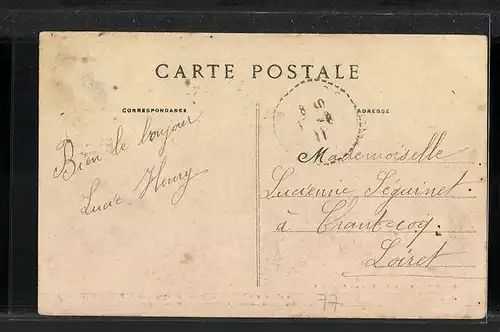 CARTE POSTALE
CORRESPONDANCE
ADRESSE
Bien le bonjour
Mademoiselle
Lucienne Séguinet
à Chantecoq
Loiret
77